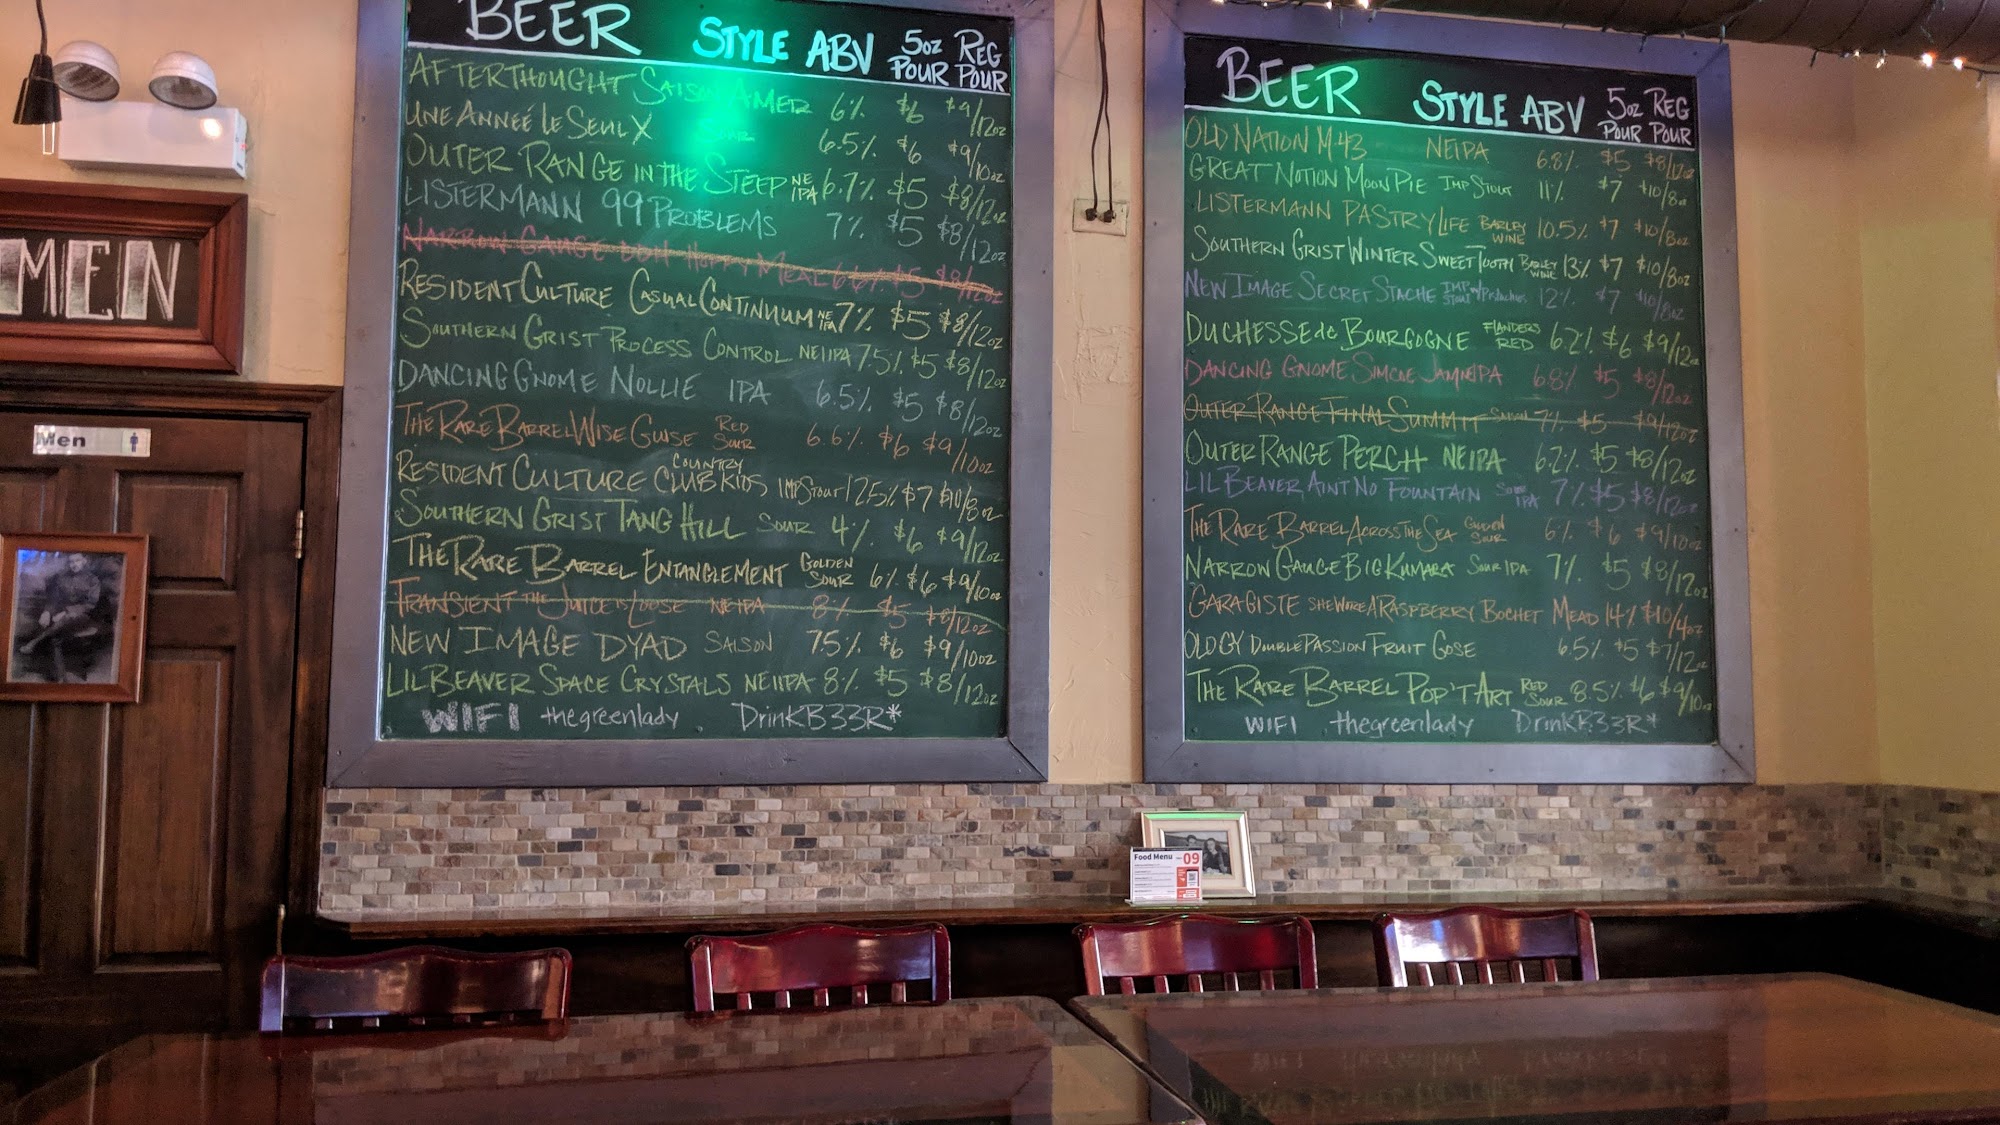 BEER STYLE ABV 5oz POUR REG POUR
AFTERTHOUGHT SAISON AMER 6% $6 $9/12oz
UNE ANNEÉ LE SEUL X SOUR 6.5% $6 $9/10oz
OUTER RANGE IN THE STEEP NE IPA 6.7% $5 $8/12oz
LISTERMANN 99 PROBLEMS 7% $5 $8/12oz
NARROW GAUGE DDH HOPPY MEAL 6.6% $5 $8/12oz
RESIDENT CULTURE CASUAL CONTINUUM NE IPA 7% $5 $8/12oz
SOUTHERN GRIST PROCESS CONTROL NEIIPA 7.5% $5 $8/12oz
DANCING GNOME NOLLIE IPA 6.5% $5 $8/12oz
THE RARE BARREL WISE GUISE RED SOUR 6.6% $6 $9/10oz
RESIDENT CULTURE COUNTRY CLUB KIDS IMP STOUT 12.5% $7 $10/8oz
SOUTHERN GRIST TANG HILL SOUR 4% $6 $9/12oz
THE RARE BARREL ENTANGLEMENT GOLDEN SOUR 6% $6 $9/10oz
TRANSIENT THE JUICE IS LOOSE NEIPA 8% $5 $8/12oz
NEW IMAGE DYAD SAISON 7.5% $6 $9/10oz
LIL BEAVER SPACE CRYSTALS NEIIPA 8% $5 $8/12oz
WIFI thegreenlady. DrinKB33R*
BEER STYLE ABV 5oz POUR REG POUR
OLD NATION M43 NEIPA 6.8% $5 $8/12oz
GREAT NOTION MOON PIE IMP STOUT 11% $7 $10/8oz
LISTERMANN PASTRY LIFE BARLEY WINE 10.5% $7 $10/8oz
SOUTHERN GRIST WINTER SWEET TOOTH BARLEY WINE 13% $7 $10/8oz
NEW IMAGE SECRET STACHE IMP STOUT w/Pistachios 12% $7 $10/8oz
DUCHESSE de BOURGOGNE FLANDERS RED 6.2% $6 $9/12oz
DANCING GNOME SIMCOE JAM NEIPA 6.8% $5 $8/12oz
OUTER RANGE FINAL SUMMIT SAISON 7% $5 $9/12oz
OUTER RANGE PERCH NEIPA 6.2% $5 $8/12oz
LIL BEAVER AINT NO FOUNTAIN SOUR IPA 7% $5 $8/12oz
THE RARE BARREL ACROSS THE SEA GOLDEN SOUR 6% $6 $9/10oz
NARROW GAUGE BIG KUMARA SOUR IPA 7% $5 $8/12oz
GARAGISTE SHE WORE A RASPBERRY BOCHET MEAD 14% $10/4oz
OLOGY DOUBLE PASSION FRUIT GOSE 6.5% $5 $7/12oz
THE RARE BARREL POP'T ART RED SOUR 8.5% $6 $9/10oz
WIFI thegreenlady DrinKB33R*
MEN
Men
Food Menu 09